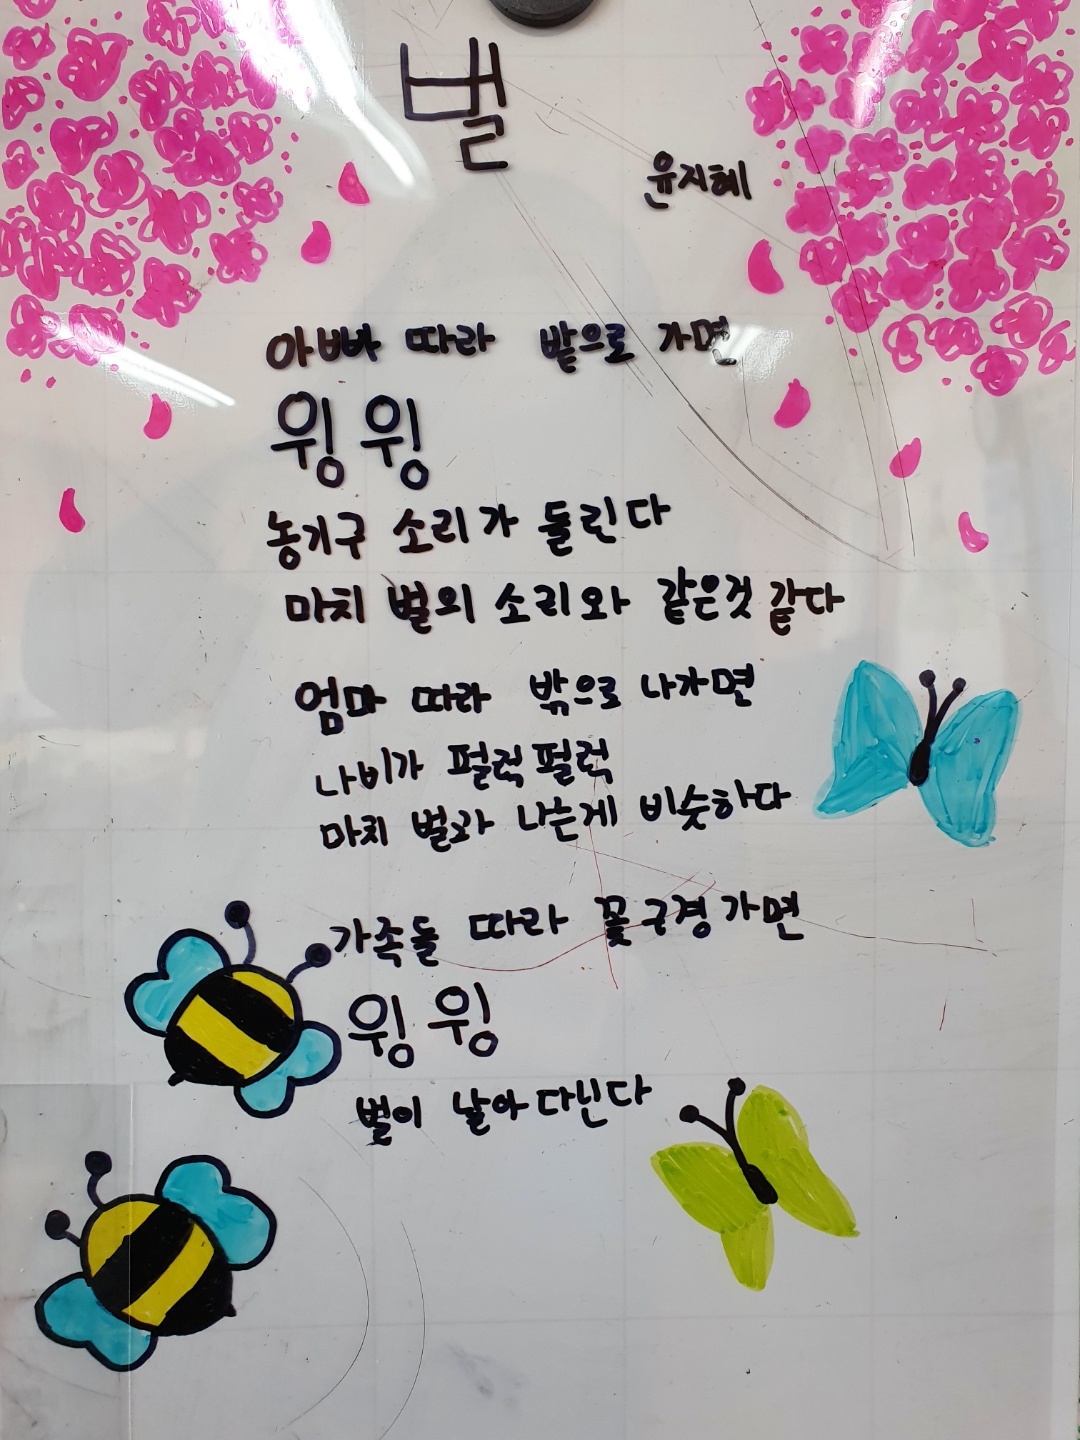 벌
윤지혜
아빠 따라 밭으로 가면
윙 윙
농기구 소리가 들린다
마치 벌의 소리와 같은것 같다
엄마 따라 밖으로 나가면
나비가 펄럭 펄럭
마치 벌과 나는게 비슷하다
가족들 따라 꽃구경 가면
윙 윙
벌이 날아 다닌다